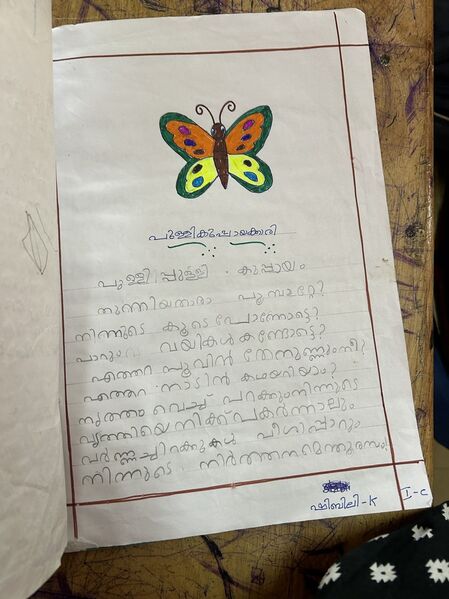 പുള്ളികുപ്പായക്കാരി
പുള്ളി പുള്ളി കുപ്പായം
തുന്നിയതാരാ പൂമ്പാറ്റേ?
നിന്നുടെ കൂടെ പോന്നോട്ടെ?
പാറും വയികൾ കണ്ടോട്ടെ?
എത്ര പൂവിൻ തേനുണ്ണുംനീ?
എത്ര നാടിൻ കഥയറിയാം?
നൃത്തം വെച്ച് പറക്കുംനിന്നുടെ
വൃത്തിയെനിക്ക് പകർന്നാലും
വർണ്ണച്ചിറകുകൾ വീശിപ്പാറും
നിന്നുടെ നർത്തനമെന്തുരസം
ഷിബിലി-K
I-C